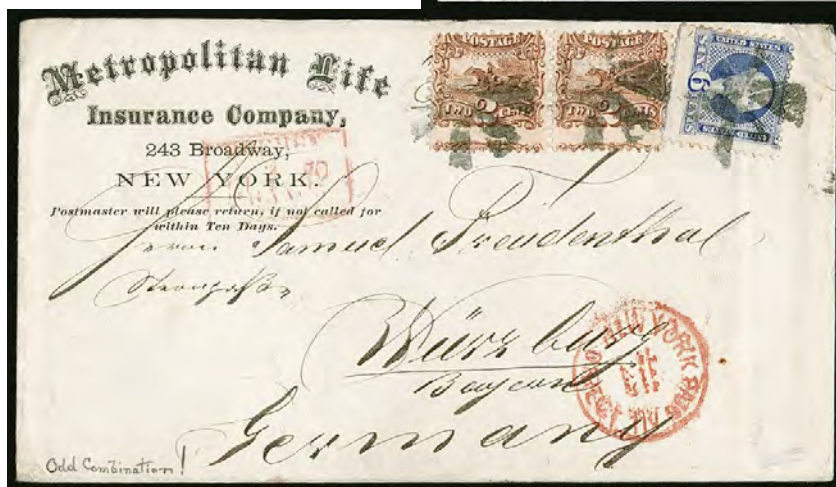 Metropolitan Life
Insurance Company,
243 Broadway,
NEW YORK.
Postmaster will please return, if not called for
within Ten Days.
POSTAGE
2
TWO CENTS
POSTAGE
2
TWO
UNITED STATES
SIX 6 CENTS
Herrn Samuel Freudenthal
Würzburg
Bayern
Germany
NEW YORK PAID
Odd Combination!